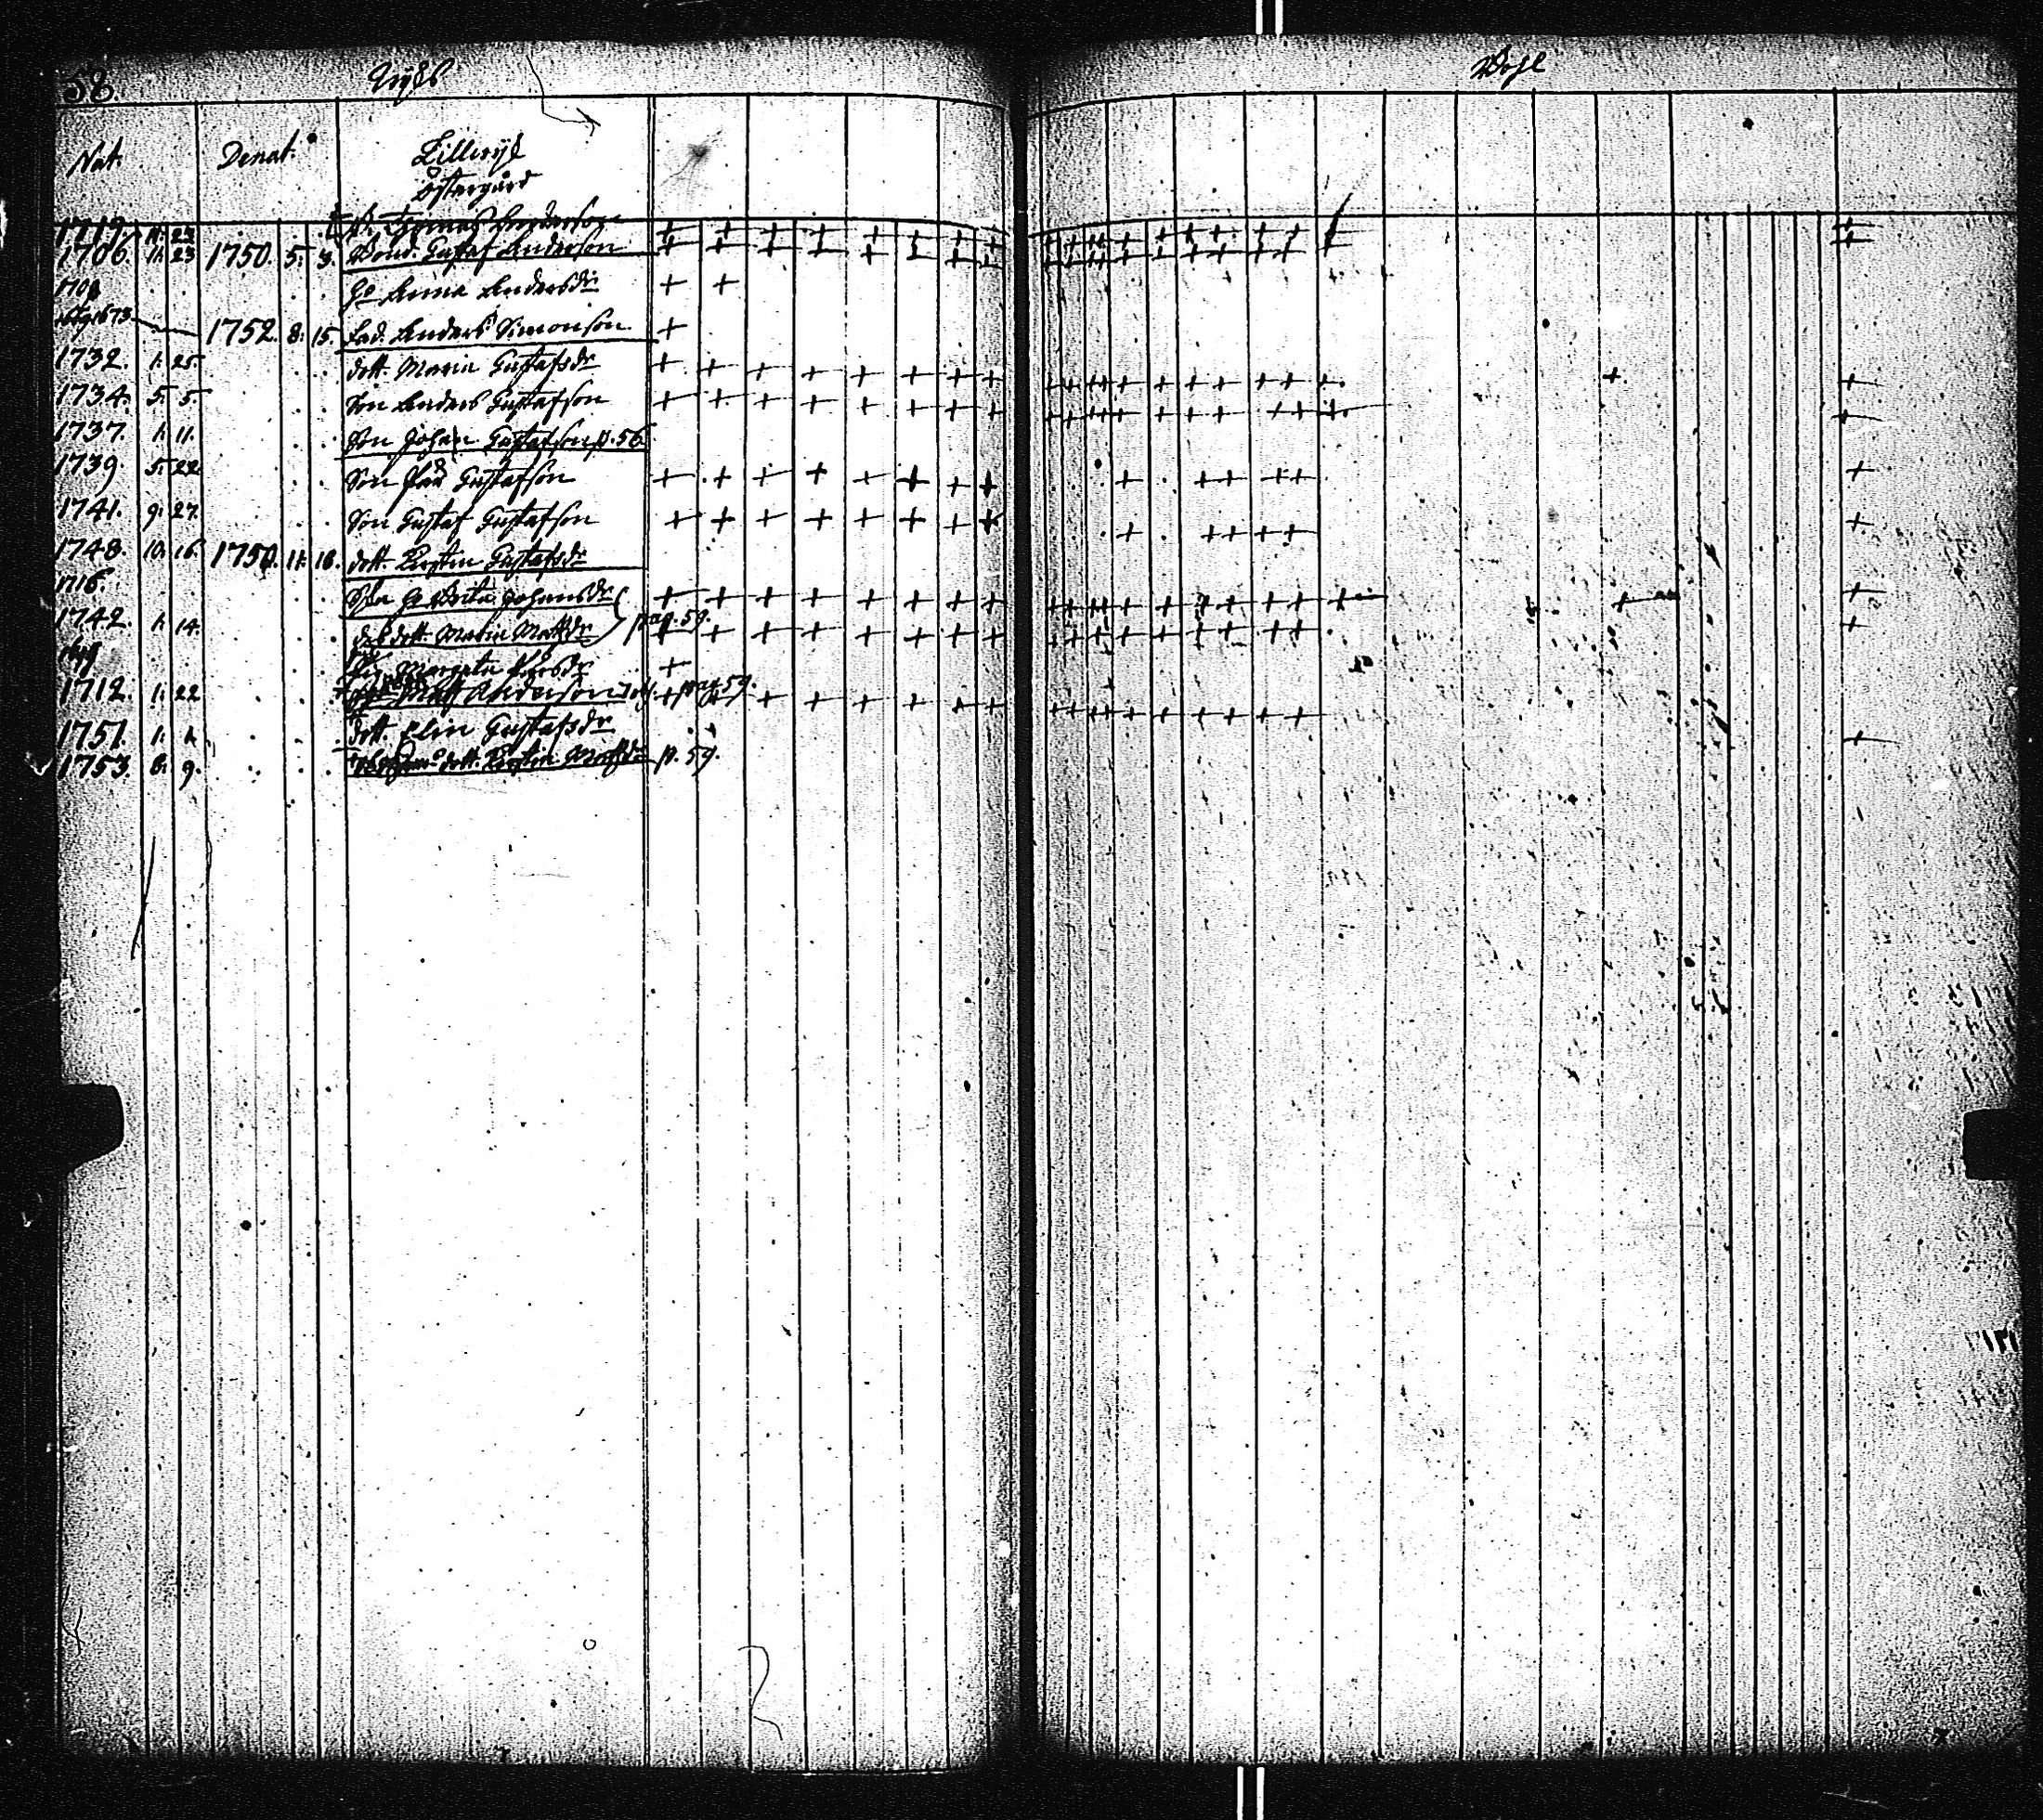 58.
Ryds
Wogl
Nat. Denat. Lilleryd
Östergård
1719. 11. 23 Anderson
1706. 11. 23 1750. 5. 3. Bond. Gustaf Anderson
1708 H:o Anna Andersdr
1673 1752. 8. 15. Fad. Anders Simonson
1732. 1. 25. dott. Maria Gustafsdr
1734. 5. 5. Son Anders Gustafson
1737. 1. 11. Son Johan Gustafson p. 56
1739. 5. 22. Son Gustafson
1741. 9. 27. Son Gustaf Gustafson
1748. 10. 16. 1750. 11. 18. dott. Kerstin Gustafsdr
1716. Brita Johansdr
1742. 1. 14. dott. Maria Matsdr pag. 59.
Pig. Margeta
1712. 1. 22 Anderson pag 59.
1751. 1. dott. Elin Gustafsdr
1753. 8. 9. dott. Kerstin p. 59.